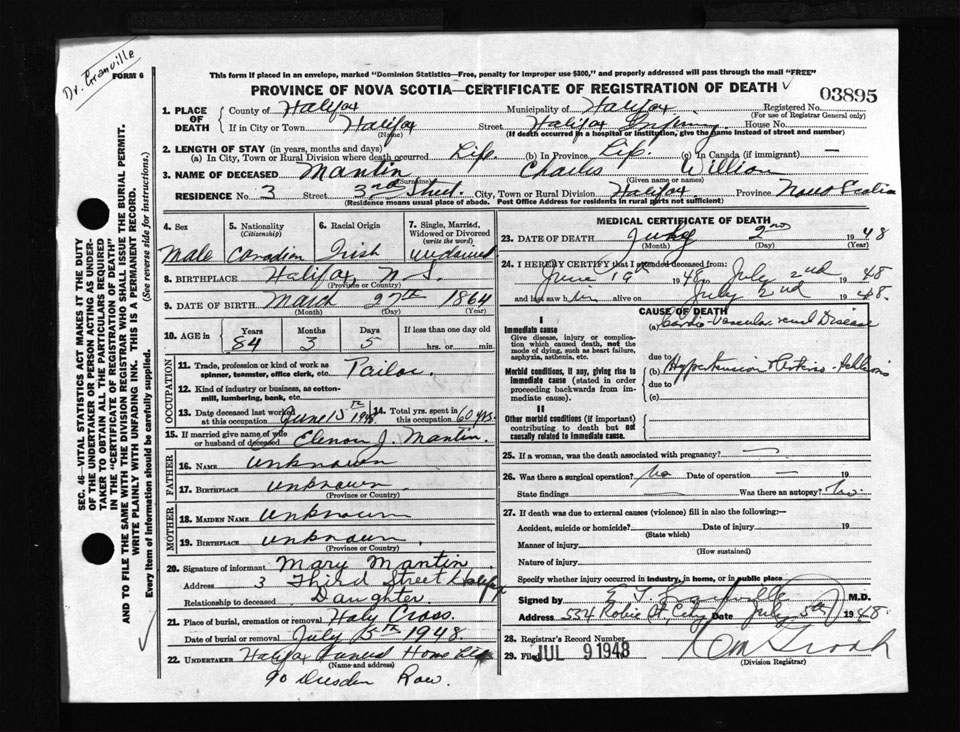 Dr. Granville
FORM 6
This form if placed in an envelope, marked "Dominion Statistics—Free, penalty for improper use $300," and properly addressed will pass through the mail "FREE"
PROVINCE OF NOVA SCOTIA—CERTIFICATE OF REGISTRATION OF DEATH
03895
SEC. 46—VITAL STATISTICS ACT MAKES IT THE DUTY
OF THE UNDERTAKER OR PERSON ACTING AS UNDER-
TAKER TO OBTAIN ALL THE PARTICULARS REQUIRED
IN THE "CERTIFICATE OF REGISTRATION OF DEATH"
AND TO FILE THE SAME WITH THE DIVISION REGISTRAR WHO SHALL ISSUE THE BURIAL PERMIT.
WRITE PLAINLY WITH UNFADING INK. THIS IS A PERMANENT RECORD.
Every item of information should be carefully supplied. (See reverse side for instructions.)
1. PLACE OF DEATH
County of Halifax Municipality of Halifax Registered No.
(For use of Registrar General only)
If in City or Town Halifax Street Halifax Infirmary House No.
(Name) (If death occurred in a hospital or institution, give the name instead of street and number)
2. LENGTH OF STAY (in years, months and days)
(a) In City, Town or Rural Division where death occurred Life. (b) In Province Life. (c) In Canada (if immigrant) —
3. NAME OF DECEASED Mantin Charles William
(Surname) (Given name or names)
RESIDENCE No. 3 Street 3rd Street. City, Town or Rural Division Halifax Province Nova Scotia
(Residence means usual place of abode. Post Office Address for residents in rural parts not sufficient)
4. Sex 5. Nationality (Citizenship) 6. Racial Origin 7. Single, Married, Widowed or Divorced (write the word)
Male Canadian Irish Widowed
8. BIRTHPLACE Halifax, N. S.
(Province or Country)
9. DATE OF BIRTH March 27th 1864
(Month) (Day) (Year)
10. AGE in Years Months Days If less than one day old
84 3 5 hrs. or min.
OCCUPATION
11. Trade, profession or kind of work as spinner, teamster, office clerk, etc. Tailor.
12. Kind of industry or business, as cotton-mill, lumbering, bank, etc.
13. Date deceased last worked at this occupation June 15th 1948
14. Total yrs. spent in this occupation 60 yrs.
15. If married give name of wife or husband of deceased Elenor J. Mantin.
FATHER
16. NAME Unknown
17. BIRTHPLACE Unknown
(Province or Country)
MOTHER
18. MAIDEN NAME Unknown
19. BIRTHPLACE Unknown.
(Province or Country)
20. Signature of informant Mary Mantin
Address 3 Third Street Halifax
Relationship to deceased Daughter
21. Place of burial, cremation or removal Holy Cross.
Date of burial or removal July 5th 1948.
22. UNDERTAKER Halifax Funeral Home Ltd
(Name and address)
90 Dresden Row.
MEDICAL CERTIFICATE OF DEATH
23. DATE OF DEATH July 2nd 1948
(Month) (Day) (Year)
24. I HEREBY CERTIFY that I attended deceased from:
June 19th 1948 to July 2nd 1948
and last saw him alive on July 2nd 1948.
CAUSE OF DEATH
I
Immediate cause
Give disease, injury or complication which caused death, not the mode of dying, such as heart failure, asphyxia, asthenia, etc.
(a) Cardio-Vascular renal Disease
Morbid conditions, if any, giving rise to immediate cause (stated in order proceeding backwards from immediate cause).
due to
(b) Hypertension
due to
(c)
II
Other morbid conditions (if important) contributing to death but not causally related to immediate cause.
25. If a woman, was the death associated with pregnancy? —
26. Was there a surgical operation? No Date of operation — 19
State findings Was there an autopsy? No.
27. If death was due to external causes (violence) fill in also the following:—
Accident, suicide or homicide? Date of injury 19
(State which)
Manner of injury
(How sustained)
Nature of injury
Specify whether injury occurred in industry, in home, or in public place
Signed by E J Granville M.D.
Address 534 Robie St, City Date July 5th 1948.
28. Registrar's Record Number
29. Filed JUL 9 1948
(Division Registrar)